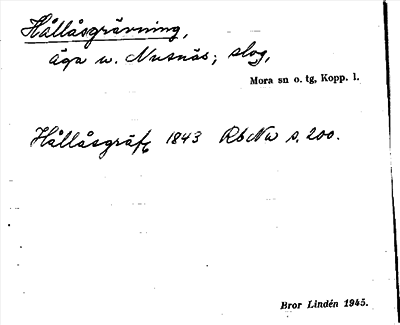 Hållåsgrävning,
äga n. Nusnäs; slog,
Mora sn o. tg, Kopp. l.
Hållåsgräf 1843 RbNu s. 200.
Bror Lindén 1945.